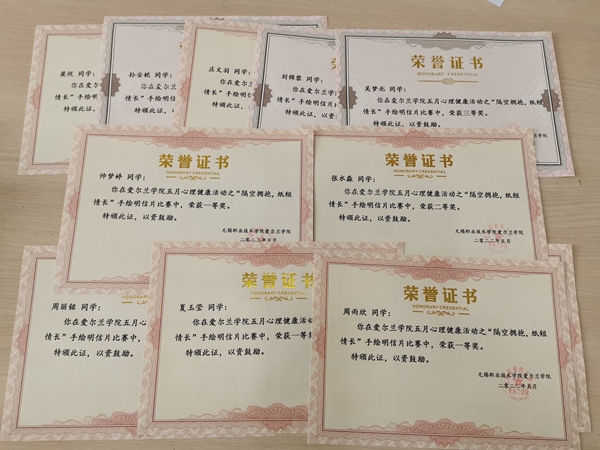 梁悦 同学：
你在爱
情长”手绘明
特颁此证，
孙安妮 同学：
你在爱尔
情长”手绘明信
特颁此证，以
庄文羽 同学：
你在爱尔
情长”手绘明信
特颁此证，以
荣誉证
HONORARY CRED
刘锦蓉 同学：
你在爱尔
情长”手绘明信片
特颁此证，以资
荣誉证书
HONORARY CREDENTIAL
吴梦北 同学：
你在爱尔兰学院五月心理健康活动之“隔空拥抱，纸短
情长”手绘明信片比赛中，荣获三等奖。
特颁此证，以资鼓励。
荣誉证书
HONORARY CREDENTIAL
帅梦婷 同学：
你在爱尔兰学院五月心理健康活动之“隔空拥抱，纸短
情长”手绘明信片比赛中，荣获一等奖。
特颁此证，以资鼓励。
无锡职业技术学院爱尔兰学院
二零二二年五月
荣誉证书
HONORARY CREDENTIAL
张水淼 同学：
你在爱尔兰学院五月心理健康活动之“隔空拥抱，纸短
情长”手绘明信片比赛中，荣获二等奖。
特颁此证，以资鼓励。
无锡职业技术学院爱尔兰学院
二零二二年五月
周丽铭 同学：
你在爱尔兰学院
情长”手绘明信片比
特颁此证，以资鼓励。
荣誉证书
HONORARY CREDENTIAL
夏玉莹 同学：
你在爱尔兰学院五月心理健康
情长”手绘明信片比赛中，荣获一等
特颁此证，以资鼓励。
荣誉证书
HONORARY CREDENTIAL
周雨欣 同学：
你在爱尔兰学院五月心理健康活动之“隔空拥抱，纸短
情长”手绘明信片比赛中，荣获一等奖。
特颁此证，以资鼓励。
无锡职业技术学院爱尔兰学院
二零二二年五月